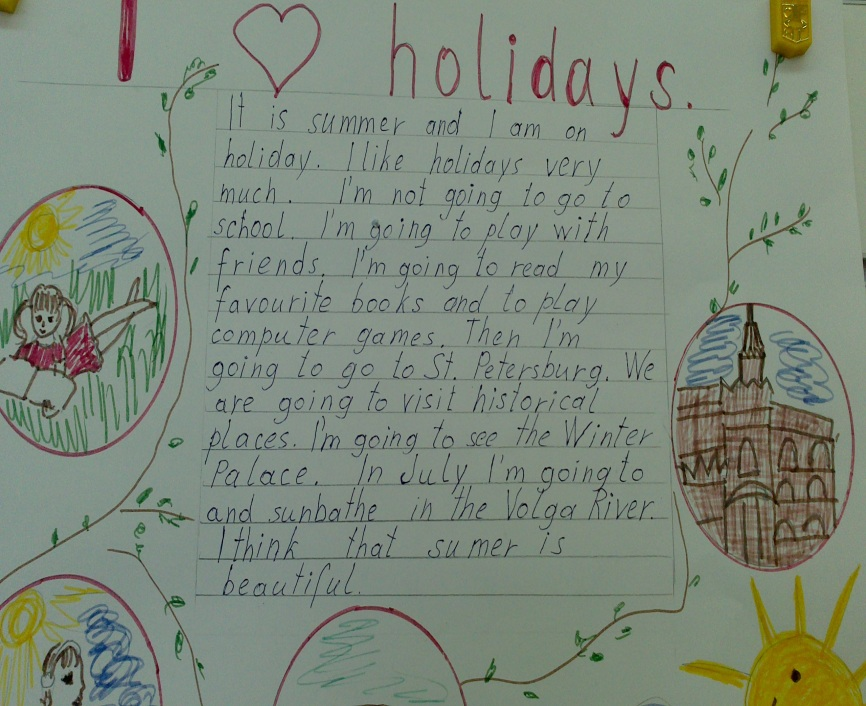 I ♥ holidays.
It is summer and I am on
holiday. I like holidays very
much. I'm not going to go to
school. I'm going to play with
friends. I'm going to read my
favourite books and to play
computer games. Then I'm
going to go to St. Petersburg. We
are going to visit historical
places. I'm going to see the Winter
Palace. In July I'm going to
and sunbathe in the Volga River.
I think that sumer is
beautiful.